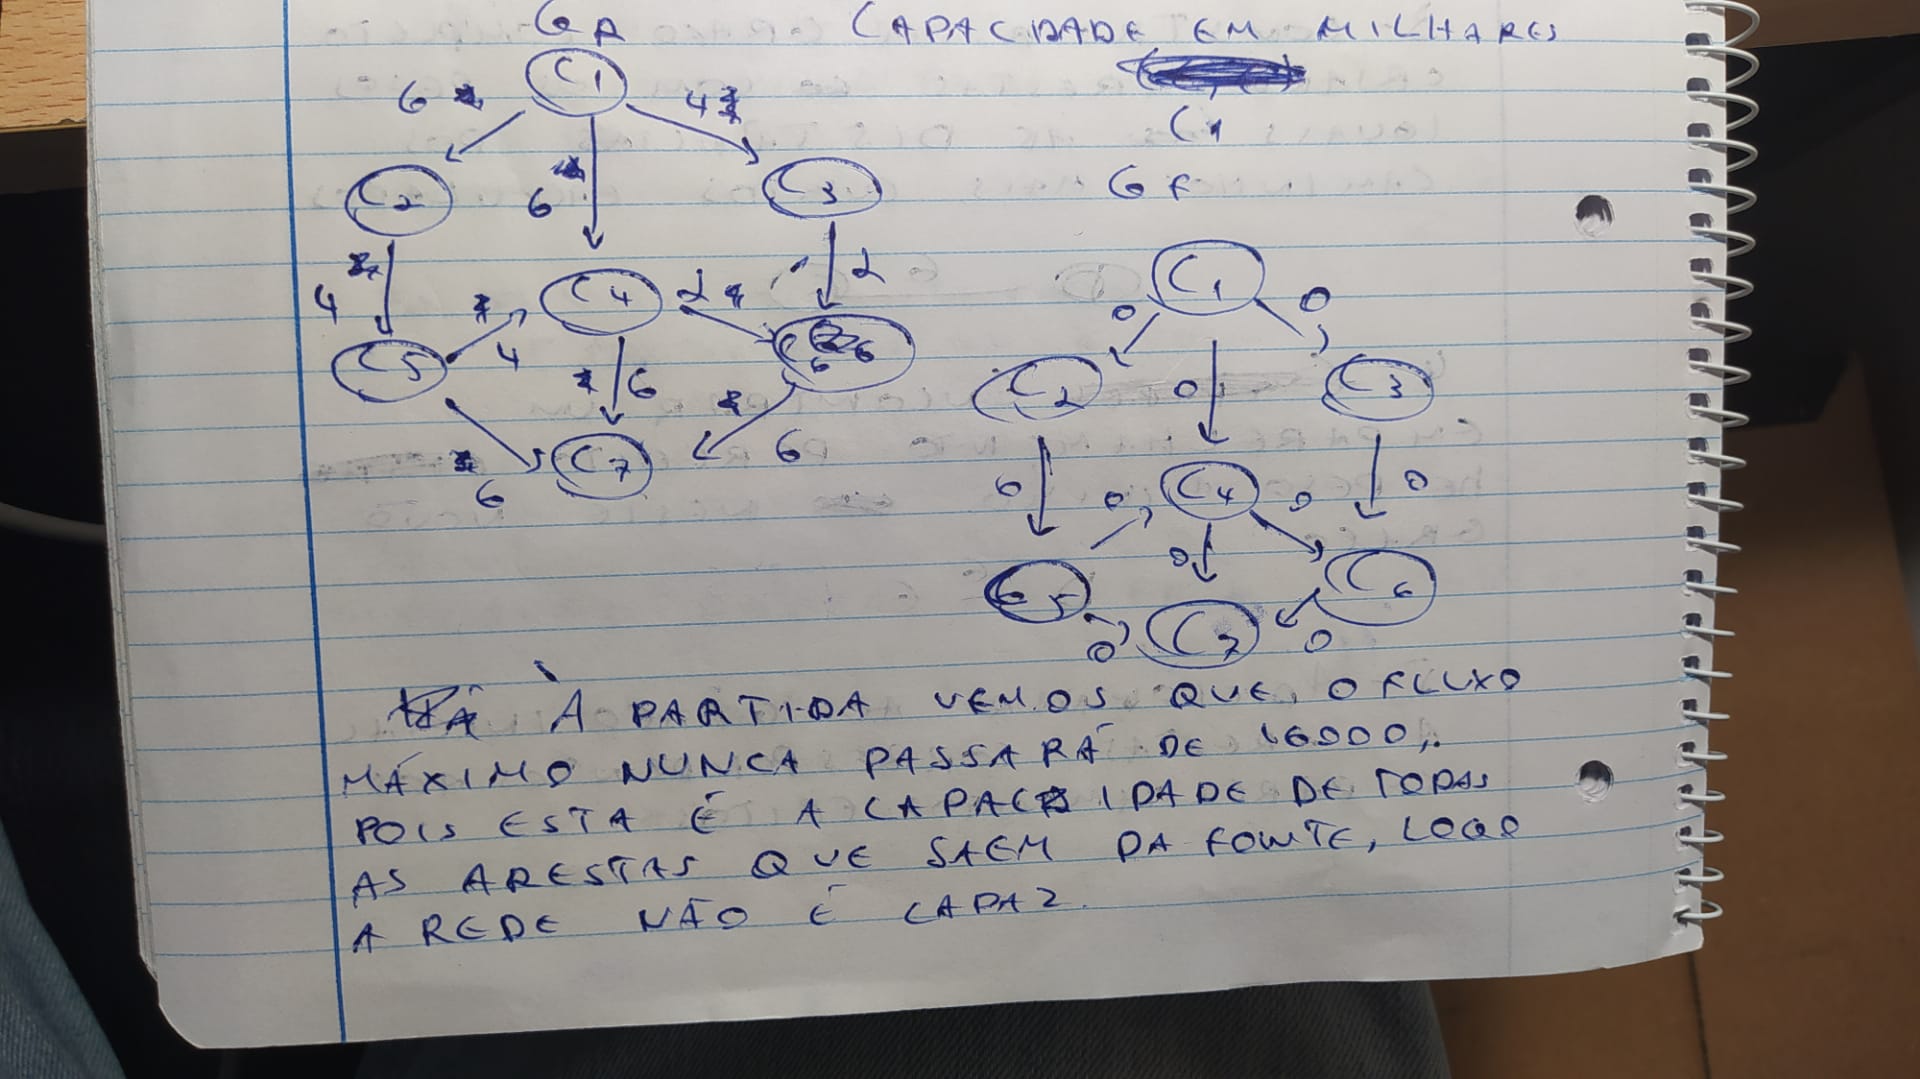 GR CAPACIDADE EM MILHARES
C1
6 4
C1
C2 6 C3 GF
C1
4 C4 2 2
0 0
C5 4 C6
6 C2 0 C3
C7 6
6 0 0 C4 0 0
0
C5 C6
0 C7 0
À PARTIDA VEMOS QUE, O FLUXO
MÁXIMO NUNCA PASSARÁ DE 16000,
POIS ESTA É A CAPACIDADE DE TODAS
AS ARESTAS QUE SAEM DA FONTE, LOGO
A REDE NÃO É CAPAZ.